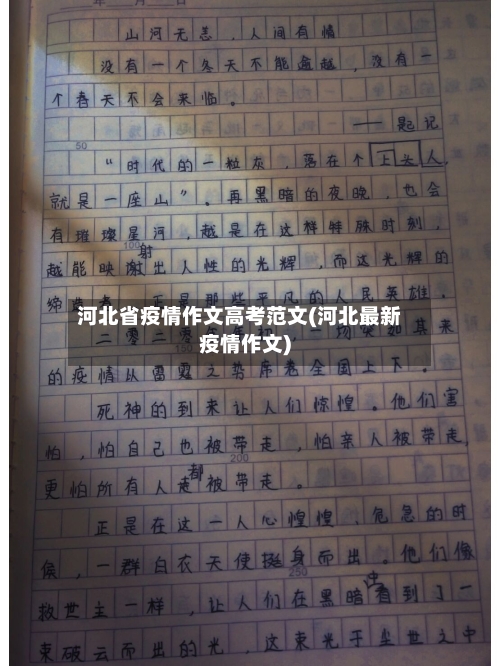 山河无恙，人间有情
没有一个冬天不能逾越，没有一
个春天不会来临。
——题记
50
“时代的一粒灰，落在个人
就是一座山”。再黑暗的夜晚，也会
有璀璨星河，越是在这样特殊时刻，
100 射
越能映出人性的光辉，而这光辉的
缔造者，正是那些平凡的人民英雄。
河北省疫情作文高考范文(河北最新
疫情作文)
二零二零年
的疫情从雷霆之势席卷全国上下。
死神的到来让人们惊惶。他们害
怕，怕自己也被带走，怕亲人被带走，
200 都
更怕所有人被带走。
正是在这一人心惶惶、危急的时
候，一群白衣天使挺身而出。他们像
250 中
救世主一样，让人们在黑暗看到了一
束破云而出的光，这束光于尘世之中